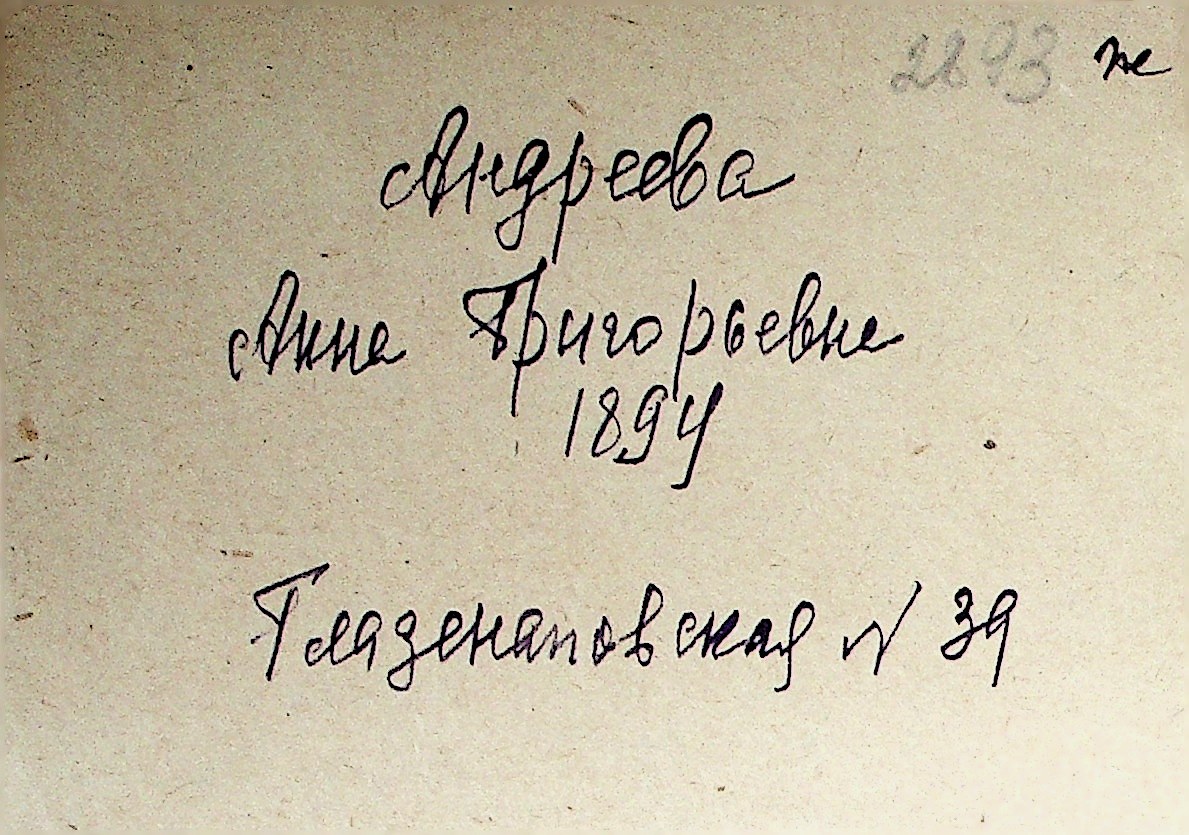 2893 ж
Андреева
Анна Григорьевна
1894
Гладенаповская № 39